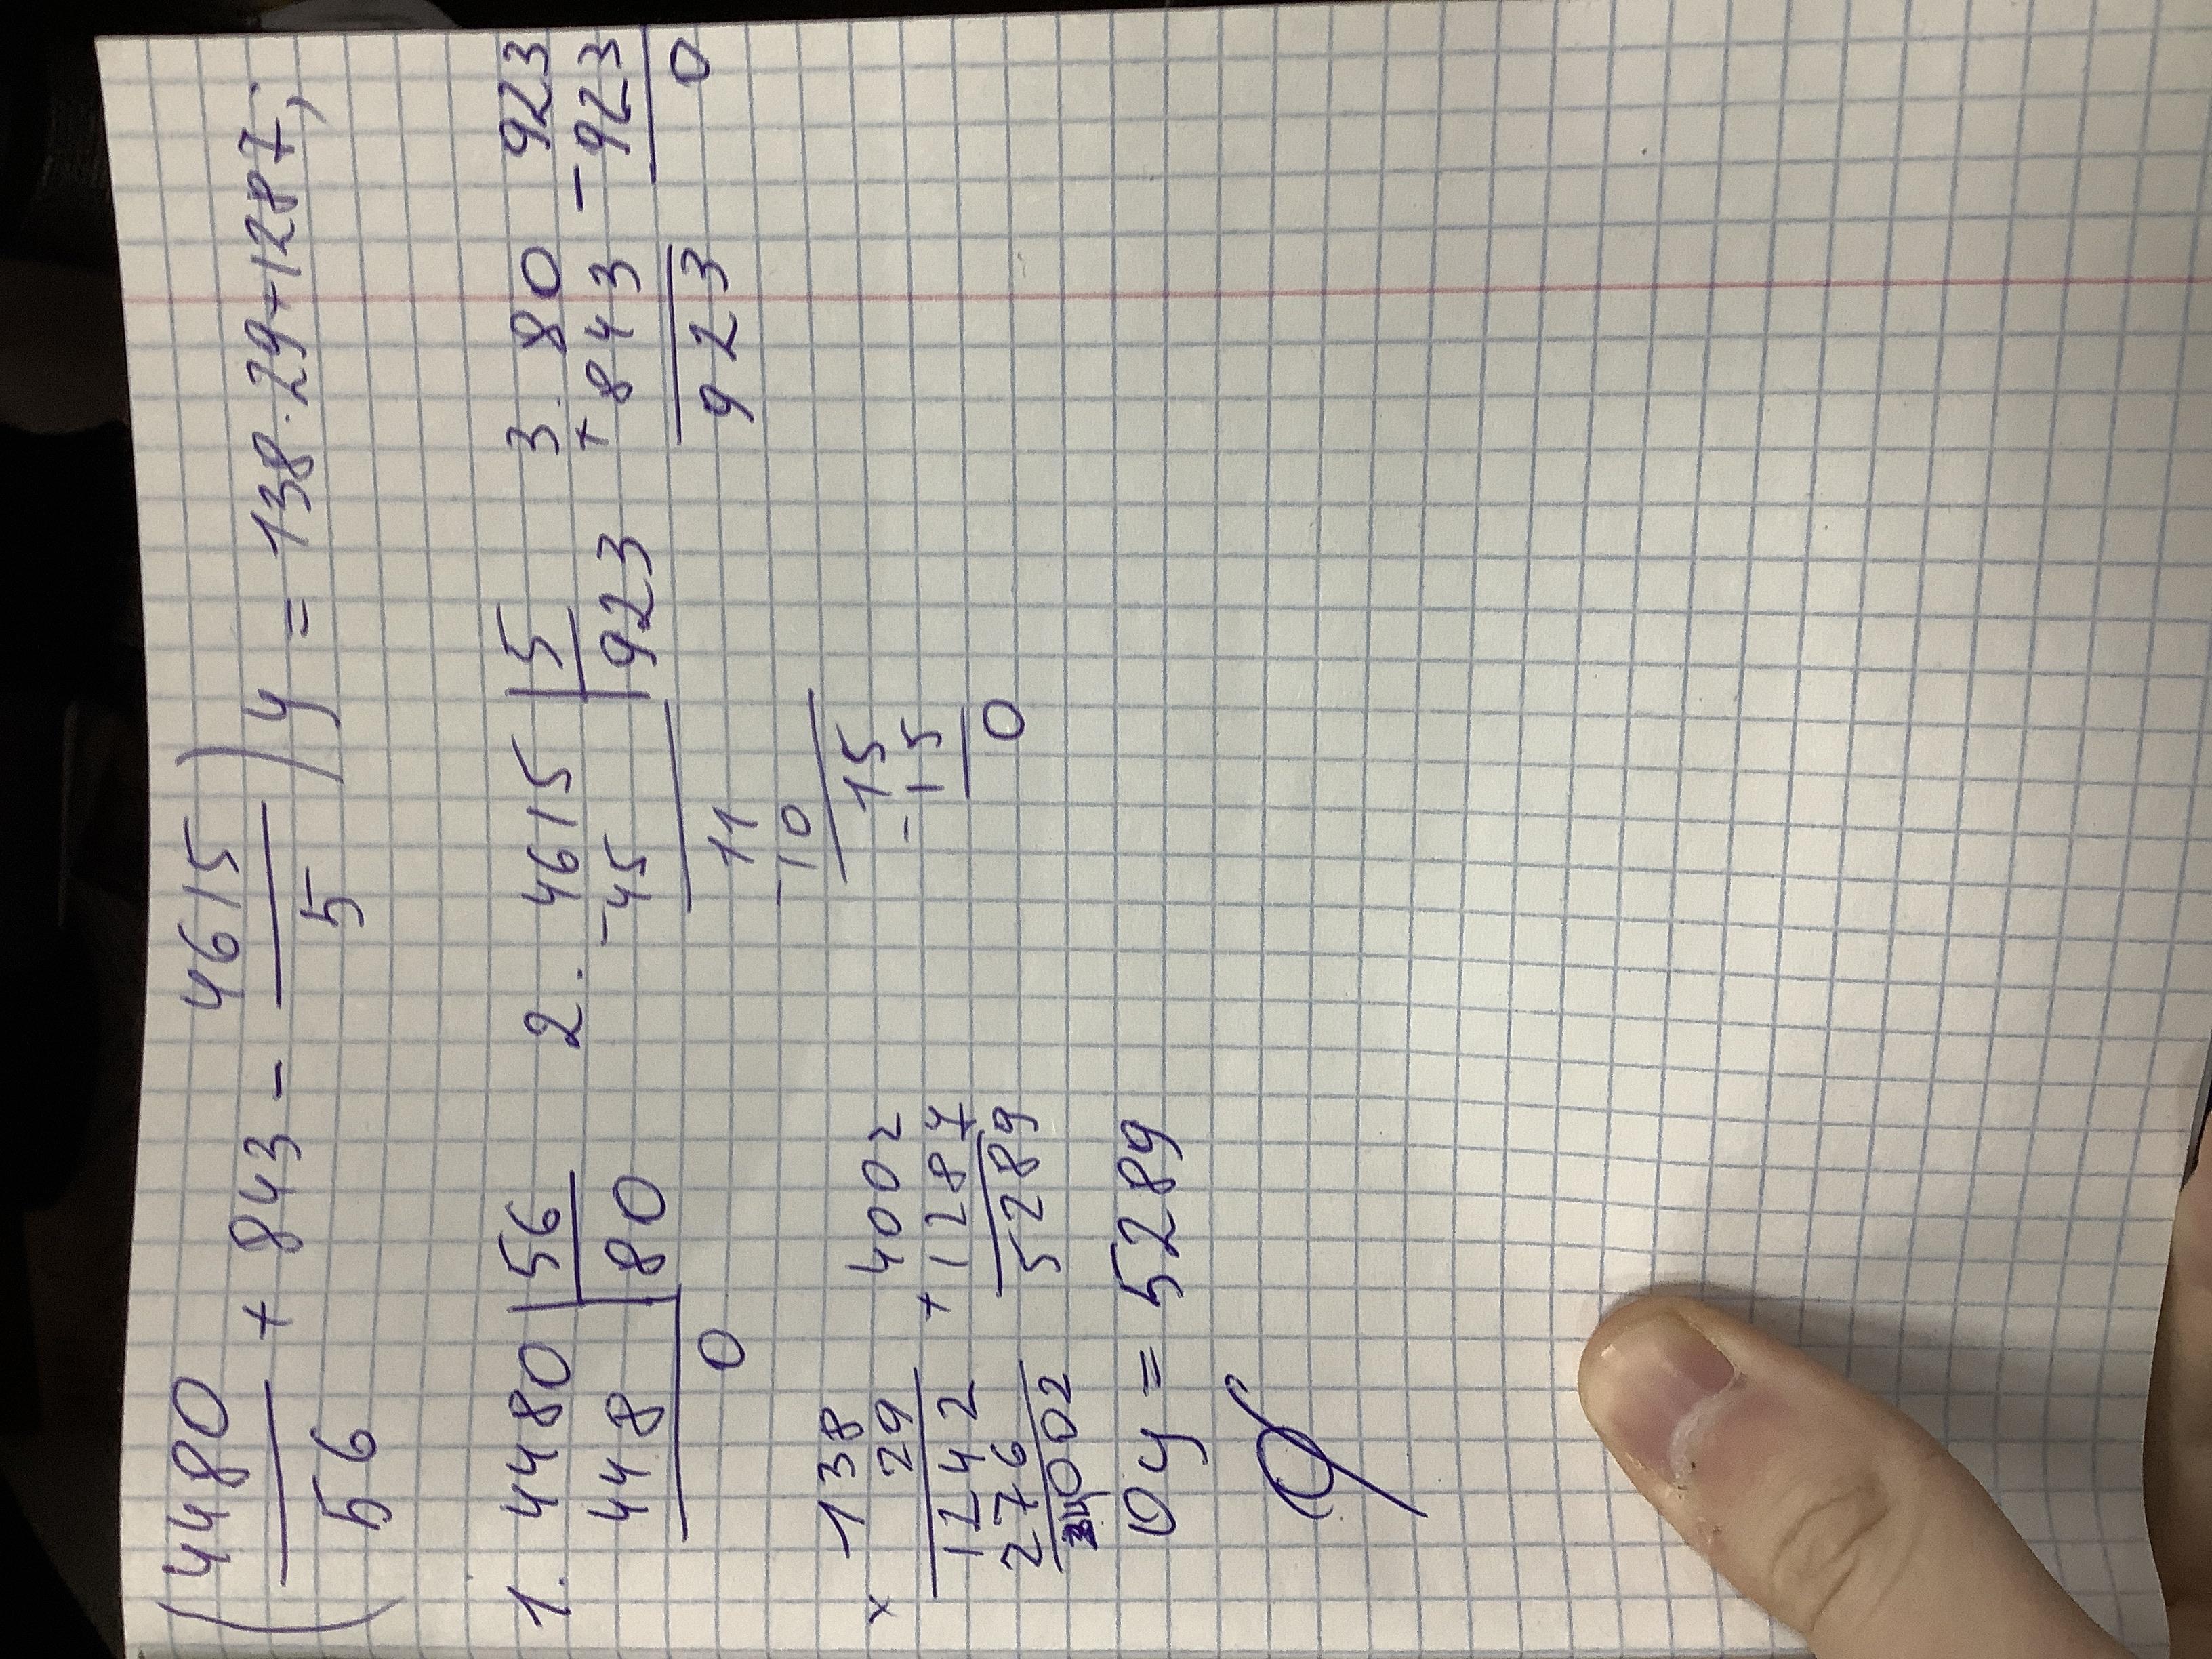 (4480/56 + 843 - 4615/5) y = 138·29+1287;
1. 4480 | 56
448 | 80
0
2. 4615 | 5
-45 | 923
11
-10
15
-15
0
3. 80
+ 843
923
923
- 923
0
× 138
29
1242
276
4002
4002
+ 1287
5289
0 y = 5289
∅